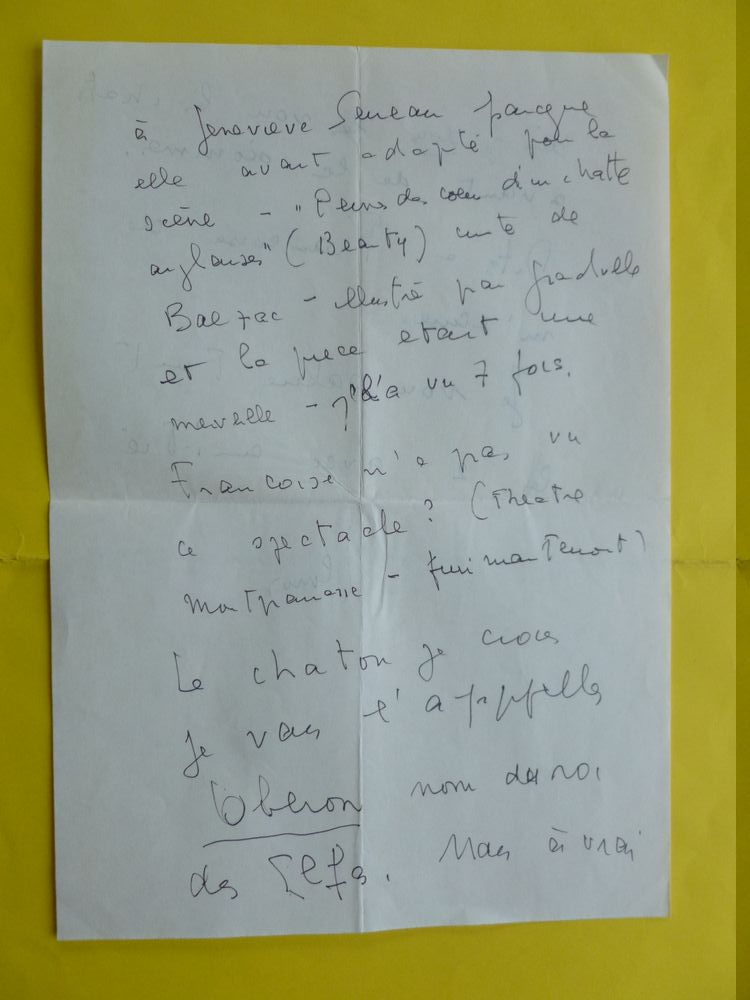 à Geneviève Serreau parceque
elle avait adapté pour la
scène - "Peines de coeur d'une chatte
anglaise" (Beauty) conte de
Balzac - illustré par Grandville
et la piece etait une
merveille - j' l'a vu 7 fois.
Françoise n'a pas vu
ce spectacle? (Theatre
Montparnasse - fini maintenant)
Le chaton je crois
je vais l'appeller
Oberon nom du roi
des Elfes. Mais à vrai